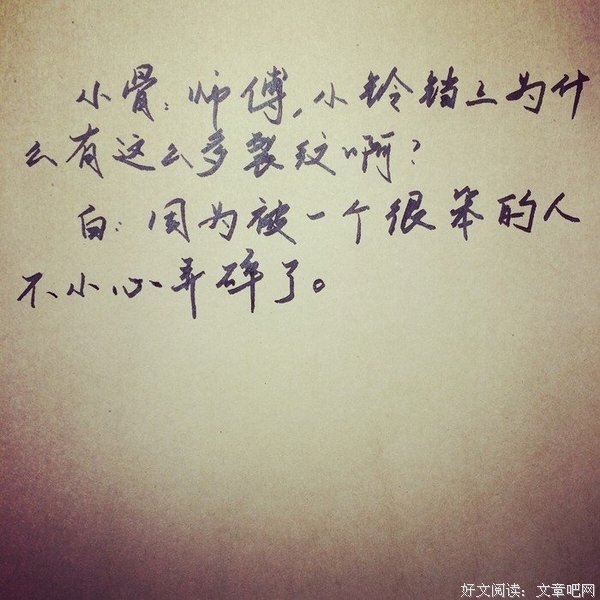 小骨：师傅，小铃铛上为什
么有这么多裂纹啊？
白：因为被一个很笨的人
不小心弄碎了。
好文阅读：文章吧网